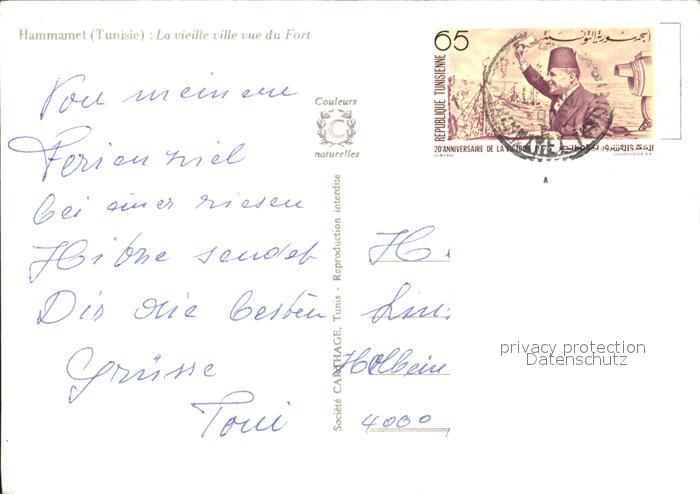 Hammamet (Tunisie) : La vieille ville vue du Fort
Von meinem
Ferienziel
bei einer riesen
Hitze sendet
Dir die besten
Grüsse
Toni
Couleurs
C
naturelles
Société CARTHAGE, Tunis - Reproduction interdite
65
الجمهورية التونسية
REPUBLIQUE TUNISIENNE
20e ANNIVERSAIRE DE LA VICTOIRE
H
Holbein
4000
privacy protection
Datenschutz